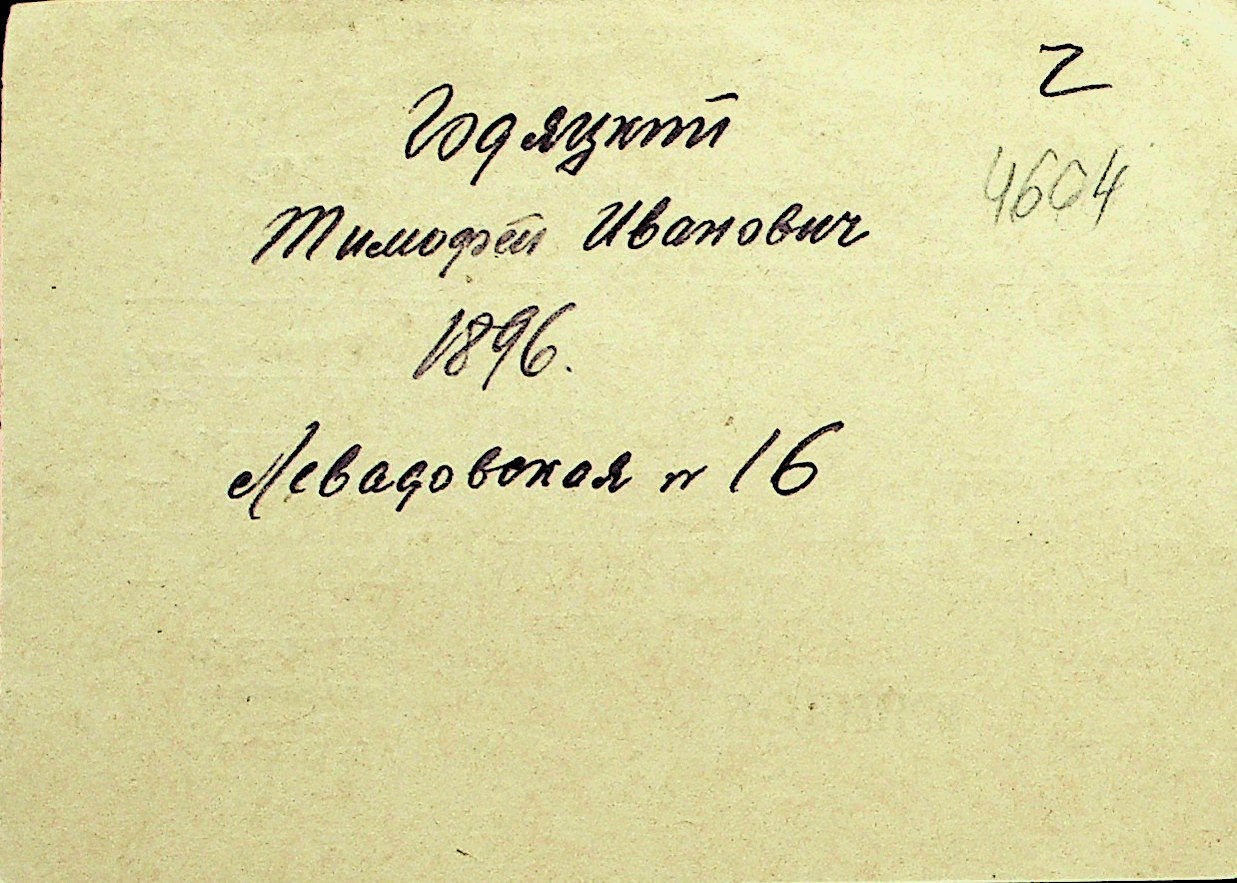 2
4604
Годяцкий
Тимофей Иванович
1896.
Левадовская № 16